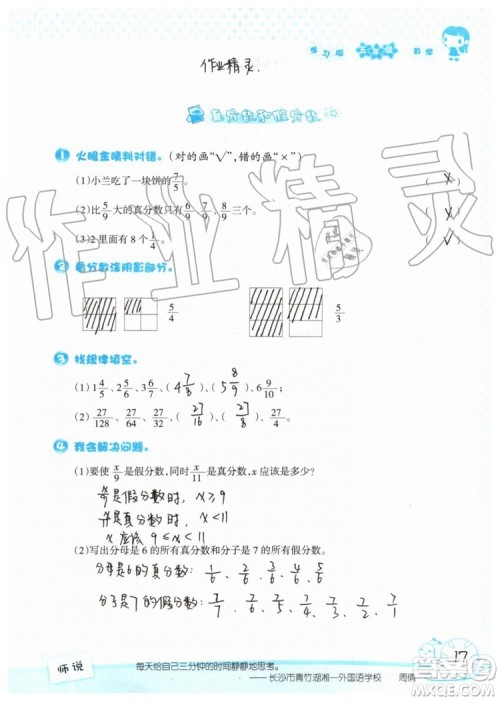 练习册 五年级 数学
作业精灵.
真分数和假分数
1 火眼金睛判对错。(对的画“√”,错的画“×”)
(1)小兰吃了一块饼的7/5。 ( × )
(2)比5/9大的真分数只有6/9、7/9、8/9三个。
(3)2里面有8个1/4。 ( √ )
作业精灵
2 看分数涂阴影部分。
5/4 5/3
3 找规律填空。
(1) 1 4/5、2 5/6、3 6/7、( 4 7/8 )、( 5 8/9 )、6 9/10;
(2) 27/128、27/64、27/32、( 27/16 )、( 27/8 )、27/4。
4 我会解决问题。
(1)要使x/9是假分数,同时x/11是真分数,x应该是多少?
x/9是假分数时, x≥9
x/11是真分数时, x<11
x应该 9≤x<11
(2)写出分母是6的所有真分数和分子是7的所有假分数。
分母是6的真分数: 1/6、2/6、3/6、4/6、5/6
分子是7的假分数: 7/7、7/6、7/5、7/4、7/3、7/2、7/1
师说
每天给自己三分钟的时间静静地思考。
——长沙市青竹湖湘一外国语学校 周倩
17